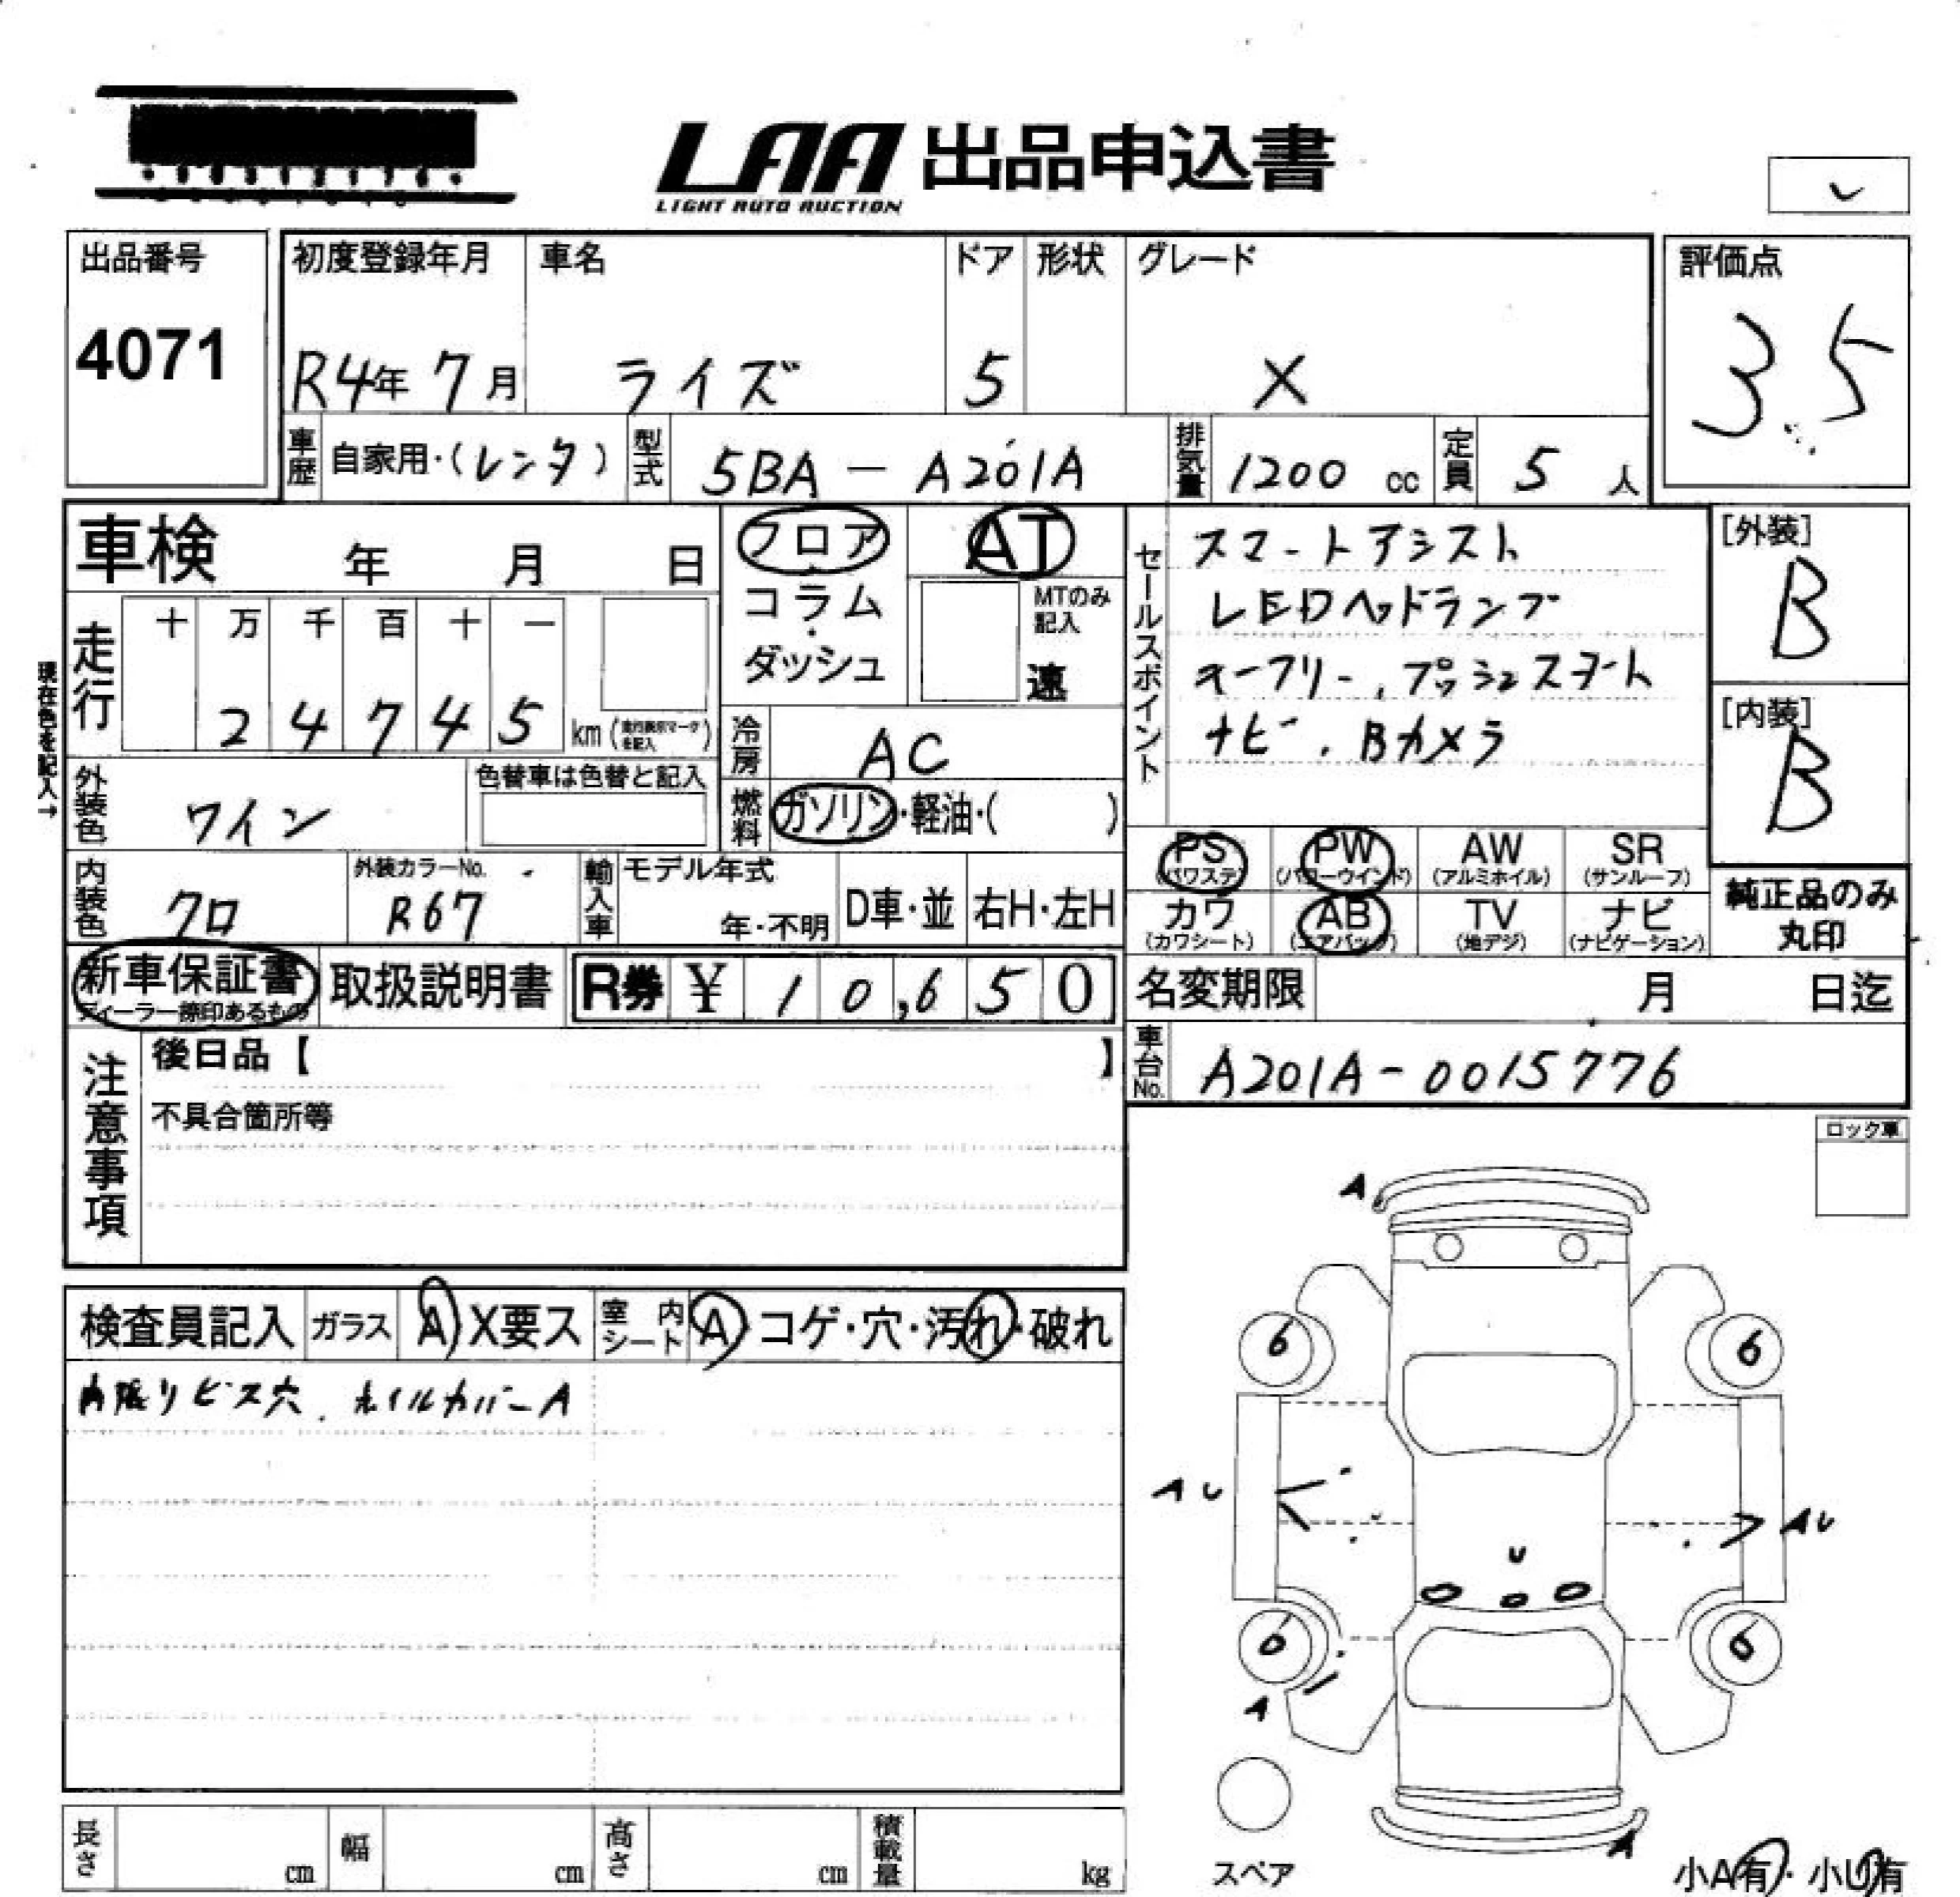 LAA 出品申込書
LIGHT AUTO AUCTION
出品番号
4071
初度登録年月
R4年 7月
車名
ライズ
ドア
5
形状
グレード
X
評価点
3.5
車歴 自家用・(レンタ)
型式 5BA-A201A
排気量 1200 cc
定員 5 人
車検 年 月 日
フロア
コラム
・
ダッシュ
AT
MTのみ
記入
速
現在色を記入→
走行
十 万 千 百 十 一
2 4 7 4 5
km
冷房 AC
外装色 ワイン
色替車は色替と記入
燃料 ガソリン・軽油・( )
内装色 クロ
外装カラーNo.
R67
輸入車
モデル年式
年・不明
D車・並
右H・左H
新車保証書
ディーラー捺印あるもの
取扱説明書
R券 ¥ 10,650
セールスポイント
スマートアシスト
LEDヘッドランプ
キーフリー、プッシュスタート
ナビ、Bカメラ
[外装]
B
[内装]
B
PS
(パワステ)
PW
(パワーウインド)
AW
(アルミホイル)
SR
(サンルーフ)
カワ
(カワシート)
AB
(エアバック)
TV
(地デジ)
ナビ
(ナビゲーション)
純正品のみ
丸印
名変期限 月 日迄
車台No. A201A-0015776
注意事項
後日品【 】
不具合箇所等
ロック車
検査員記入
ガラス A X要ス
室内シート A・コゲ・穴・汚れ・破れ
内張りビス穴、ホイルカバーA
A
6 6
AU
AU
U
6 6
A
A
スペア
小A有・小U有
長さ cm
幅 cm
高さ cm
積載量 kg